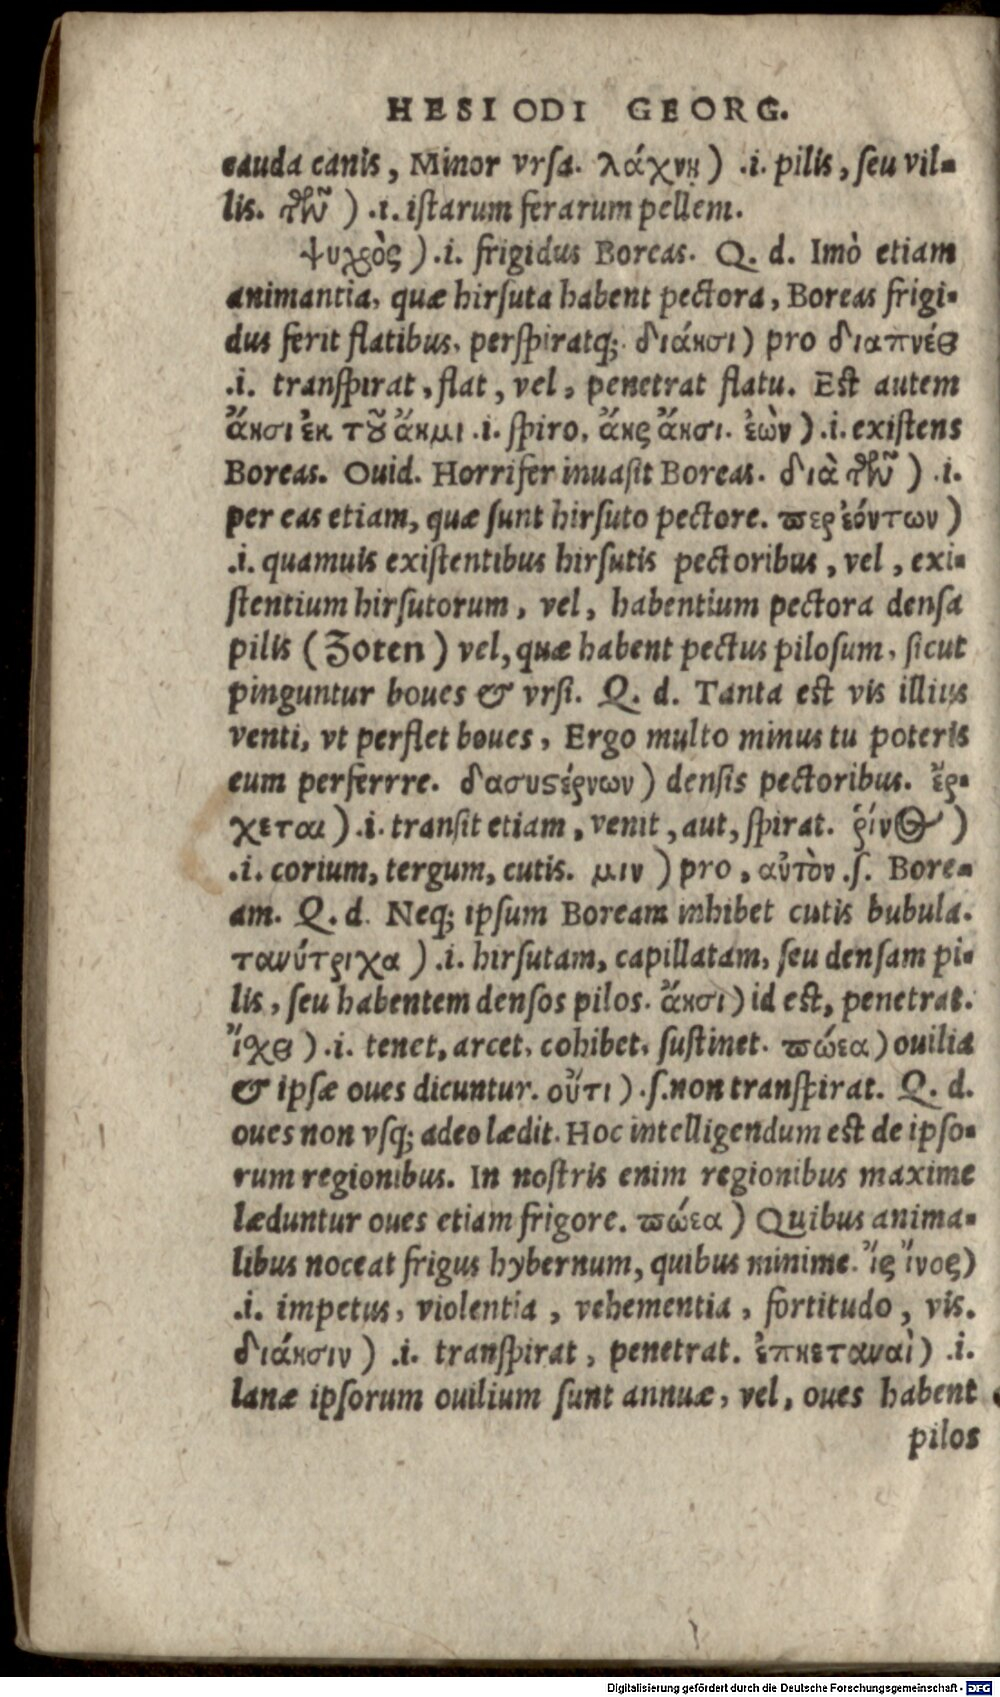 HESIODI GEORG.
cauda canis, Minor vrſa. λάχνῃ) .i. pilis, ſeu vil-
lis. τῶν) .i. iſtarum ferarum pellem.
ψυχρὸς) .i. frigidus Boreas. Q. d. Imò etiam
animantia, quæ hirſuta habent pectora, Boreas frigi-
dus ferit flatibus, perſpiratq;. διάησι) pro διαπνέει
.i. tranſpirat, flat, vel, penetrat flatu. Eſt autem
ἄησι ἐκ τοῦ ἄημι .i. ſpiro, ἄης ἄησι. ἐὼν) .i. exiſtens
Boreas. Ouid. Horrifer inuaſit Boreas. διὰ τῶν) .i.
per eas etiam, quæ ſunt hirſuto pectore. περ ἐόντων)
.i. quamuis exiſtentibus hirſutis pectoribus, vel, exi-
ſtentium hirſutorum, vel, habentium pectora denſa
pilis (Zoten) vel, quæ habent pectus piloſum, ſicut
pinguntur boues & vrſi. Q. d. Tanta eſt vis illius
venti, vt perflet boues, Ergo multo minus tu poteris
eum perferrre. δασυστέρνων) denſis pectoribus. ἔρ-
χεται) .i. tranſit etiam, venit, aut, ſpirat. ῥίνος)
.i. corium, tergum, cutis. μιν) pro, αὐτὸν .ſ. Bore-
am. Q. d. Neq; ipſum Boream inhibet cutis bubula.
τανύτριχα) .i. hirſutam, capillatam, ſeu denſam pi-
lis, ſeu habentem denſos pilos. ἄησι) id eſt, penetrat.
ἴχει) .i. tenet, arcet, cohibet, ſuſtinet. πώεα) ouilia
& ipſæ oues dicuntur. οὔτι) .ſ. non tranſpirat. Q. d.
oues non vſq; adeo lædit. Hoc intelligendum eſt de ipſo-
rum regionibus. In noſtris enim regionibus maxime
læduntur oues etiam frigore. πώεα) Quibus anima-
libus noceat frigus hybernum, quibus minime. ἴς ἴνος)
.i. impetus, violentia, vehementia, fortitudo, vis.
διάησιν) .i. tranſpirat, penetrat. ἐπηεταναὶ) .i.
lanæ ipſorum ouilium ſunt annuæ, vel, oues habent
pilos
Digitalisierung gefördert durch die Deutsche Forschungsgemeinschaft - DFG